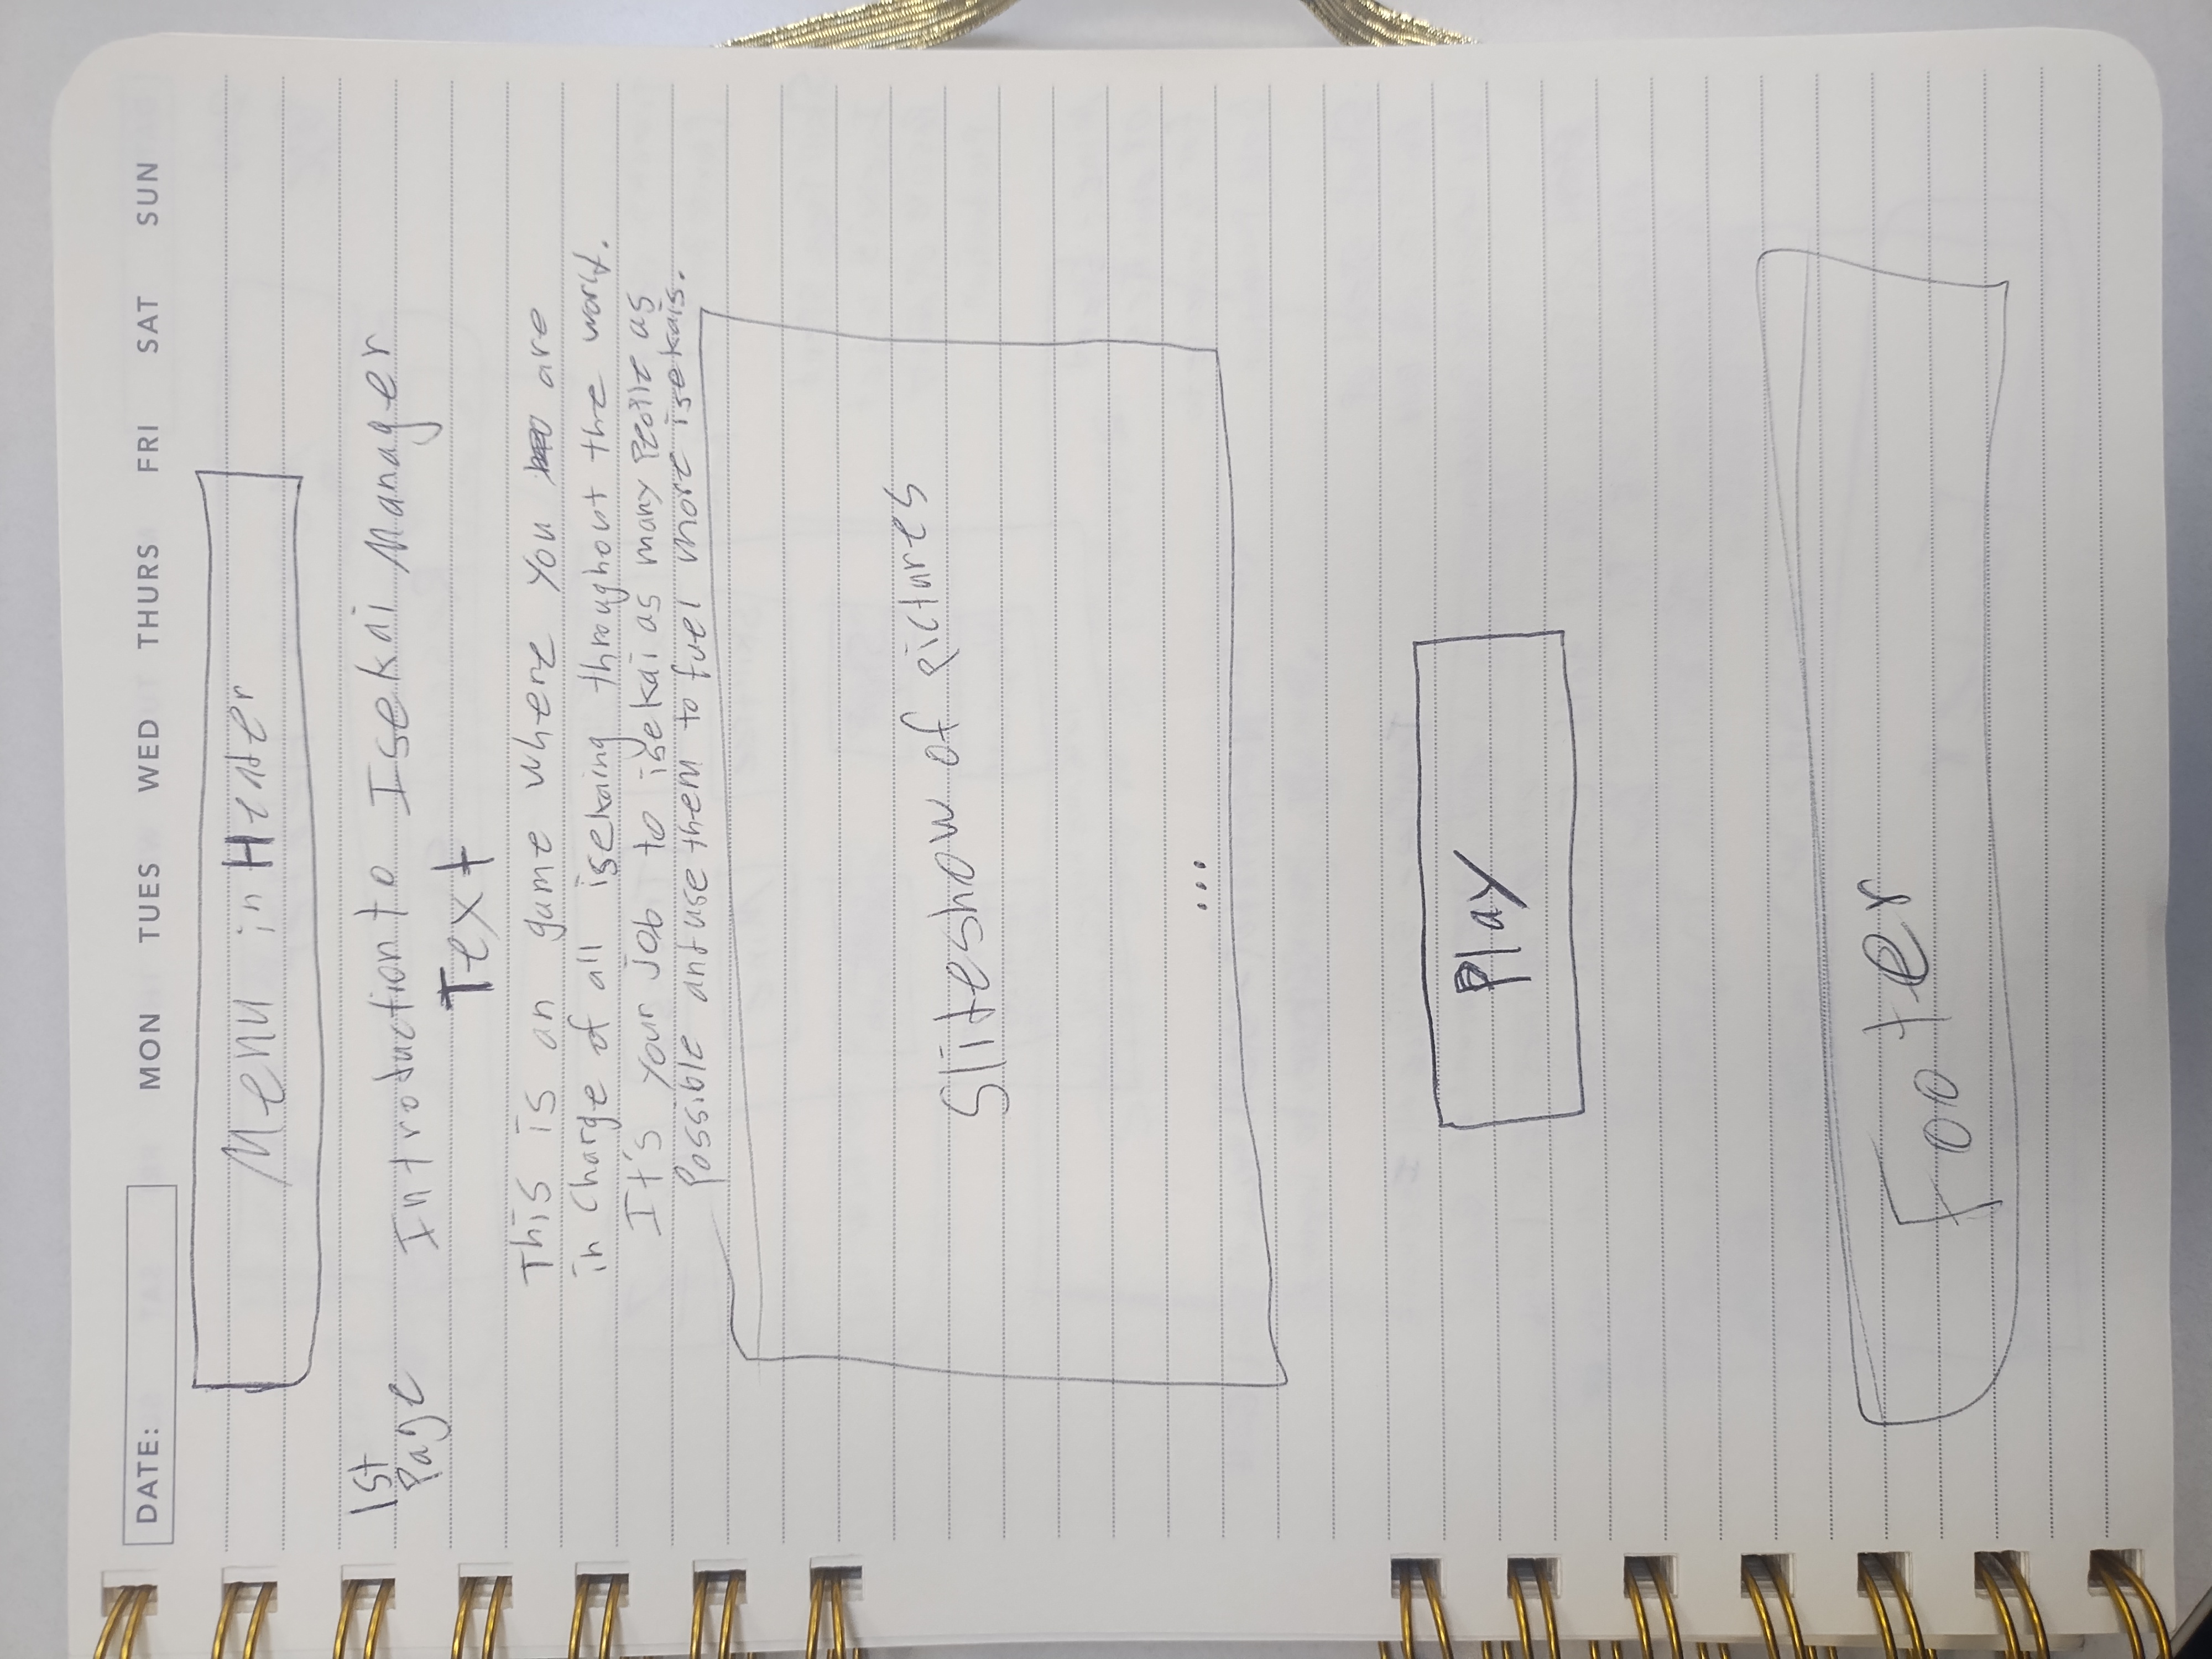 DATE: MON TUES WED THURS FRI SAT SUN
Menu in Header
1st
Page
Introduction to Isekai Manager
Text
This is an game where you are
in charge of all isekaing throughout the world.
It's your job to isekai as many people as
possible and use them to fuel more isekais.
Slideshow of pictures
...
Play
Footer